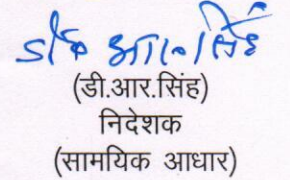 डी० आर० सिंह
(डी.आर.सिंह)
निदेशक
(सामयिक आधार)